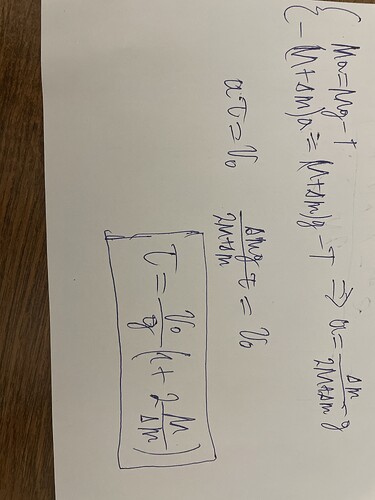 { Ma = Mg - T
- (M+Δm)a = (M+Δm)g - T ⇒ a = Δm/(2M+Δm) g
aτ = v₀   Δmg/(2M+Δm) τ = v₀
τ = v₀/g (1 + 2 M/Δm)